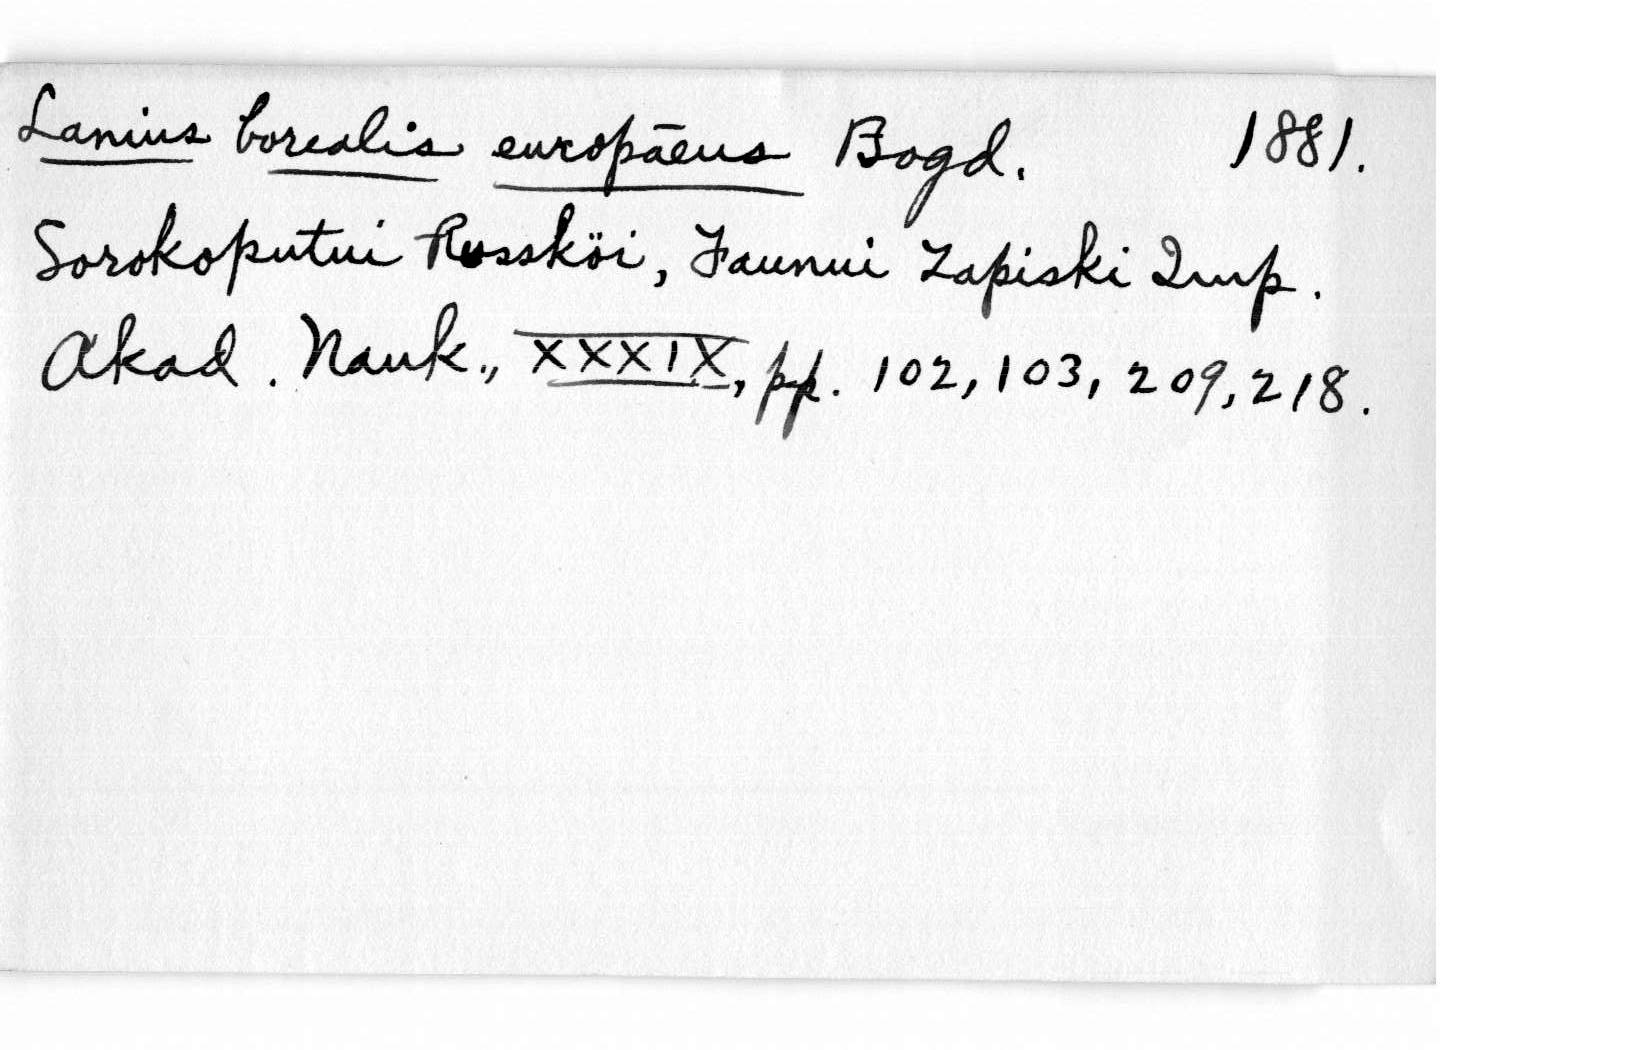 Lanius borealis europāeus Bogd. 1881.
Sorokoputui Russköi, Faunui Zapiski Imp.
Akad. Nauk., XXXIX, pp. 102, 103, 209, 218.